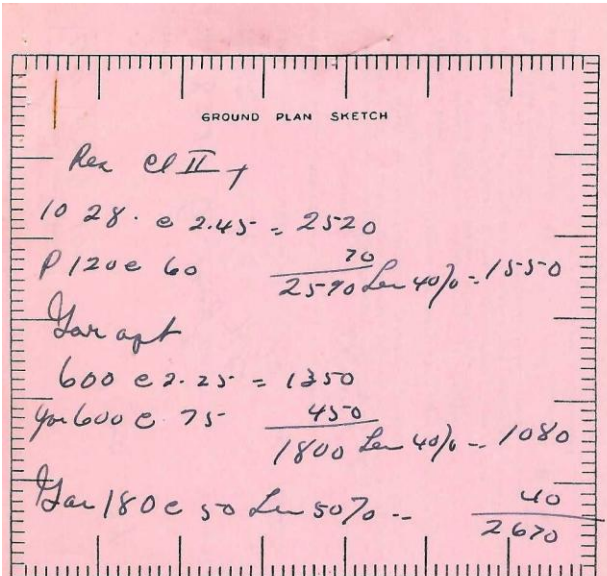 GROUND PLAN SKETCH
Res Cl II +
1028. @ 2.45 = 2520
P 120 @ 60 70
2590 Less 40% = 1550
Gar apt
600 @ 2.25 = 1350
600 @ 75 450
1800 Less 40% -- 1080
Gar 180 @ 50 Less 50% -- 40
2670